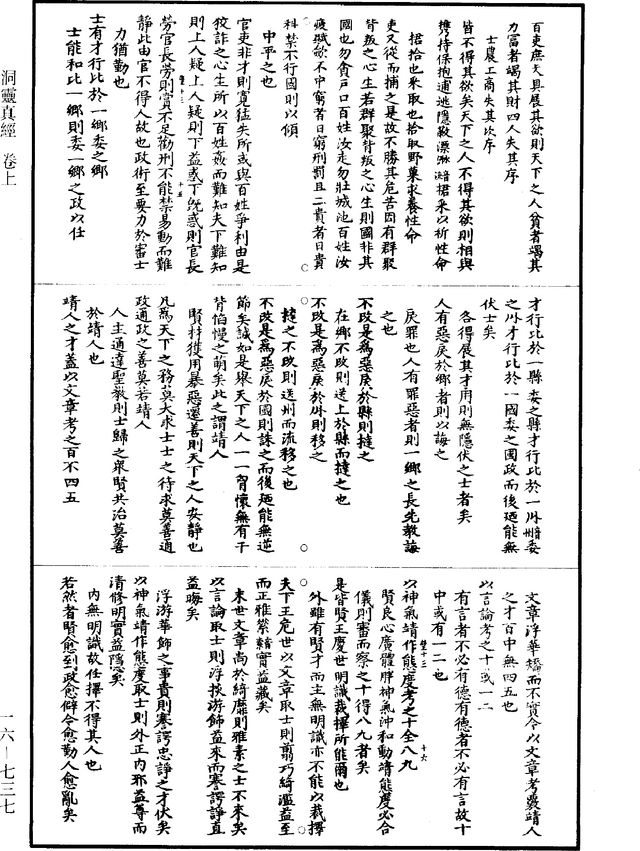 洞靈真經 卷上
一六—七三七
百吏庶夫具展其欲則天下之人貧者竭其
力富者竭其財四人失其序
士農工商失其次序
皆不得其欲矣天下之人不得其欲則相與
攜持保抱逋逃隱蔽漂流捃采以祈性命
捃拾也采取也拾取野菓求養性命
吏又從而捕之是故不勝其危苦因有群聚
背叛之心生若群聚背叛之心生則國非其
國也勿貪戶口百姓汝走勿壯城池百姓汝
疲賦歛不中窮者日窮刑罰且二貴者日貴
科禁不行國則以傾
中平之也
官吏非才則寬猛失所或與百姓爭利由是
狡詐之心生所以百姓姦而難知夫下難知
則上人疑上人疑則下益惑下旣惑則官長
勞官長勞則賞不足勸刑不能禁易動而難
靜此由官不得人故也政術至要力於審士
力猶勤也
士有才行比於一鄉委之鄉
士能和比一鄉則委一鄉之政以仕
才行比於一縣委之縣才行比於一州委
之州才行比於一國委之國政而後廼能無
伏士矣
各得展其才用則無隱伏之士者矣
人有惡戾於鄉者則以誨之
戾罪也人有罪惡者則一鄉之長先教誨
之也
不改是爲惡戾於縣則撻之
在鄉不改則送上於縣而撻之也
不改是爲惡戾於州則移之
撻之不改則送州而流移之也
不改是爲惡戾於國則誅之而後廼能無逆
節矣誠如是舉天下之人一一胷懷無有干
背怕慢之萌矣此之謂靖人
賢材獲用暴惡還善則天下之人安靜也
凡爲天下之務莫大求士士之待求莫善通
政通政之善莫若靖人
人主通達聖教則士歸之衆賢共治莫善
於靖人也
靖人之才蓋以文章考之百不四五
文章浮華矯而不實令以文章考覈靖人
之才百中無四五也
以言論考之十或一二
有言者不必有德有德者不必有言故十
中或有一二也
以神氣靖作態度考之十全八九
賢良心廣體胖神氣沖和動靖態度必合
儀則審而察之十得八九者矣
是皆賢王慶世明識裁擇所能爾也
外雖有賢才而主無明識亦不能以裁擇
夫下王危世以文章取士則翦巧綺濫益至
而正雅繁緒實益藏矣
末世文章尚於綺靡則雅素之士不來矣
以言論取士則浮掞游飾益來而謇諤諍直
益晦矣
浮游華飾之事貴則謇諤忠諍之才伏矣
以神氣靖作態度取士則外正內邪益尊而
清修明實益隱矣
內無明識故任擇不得其人也
若然者賢愈到政愈僻令愈勤人愈亂矣